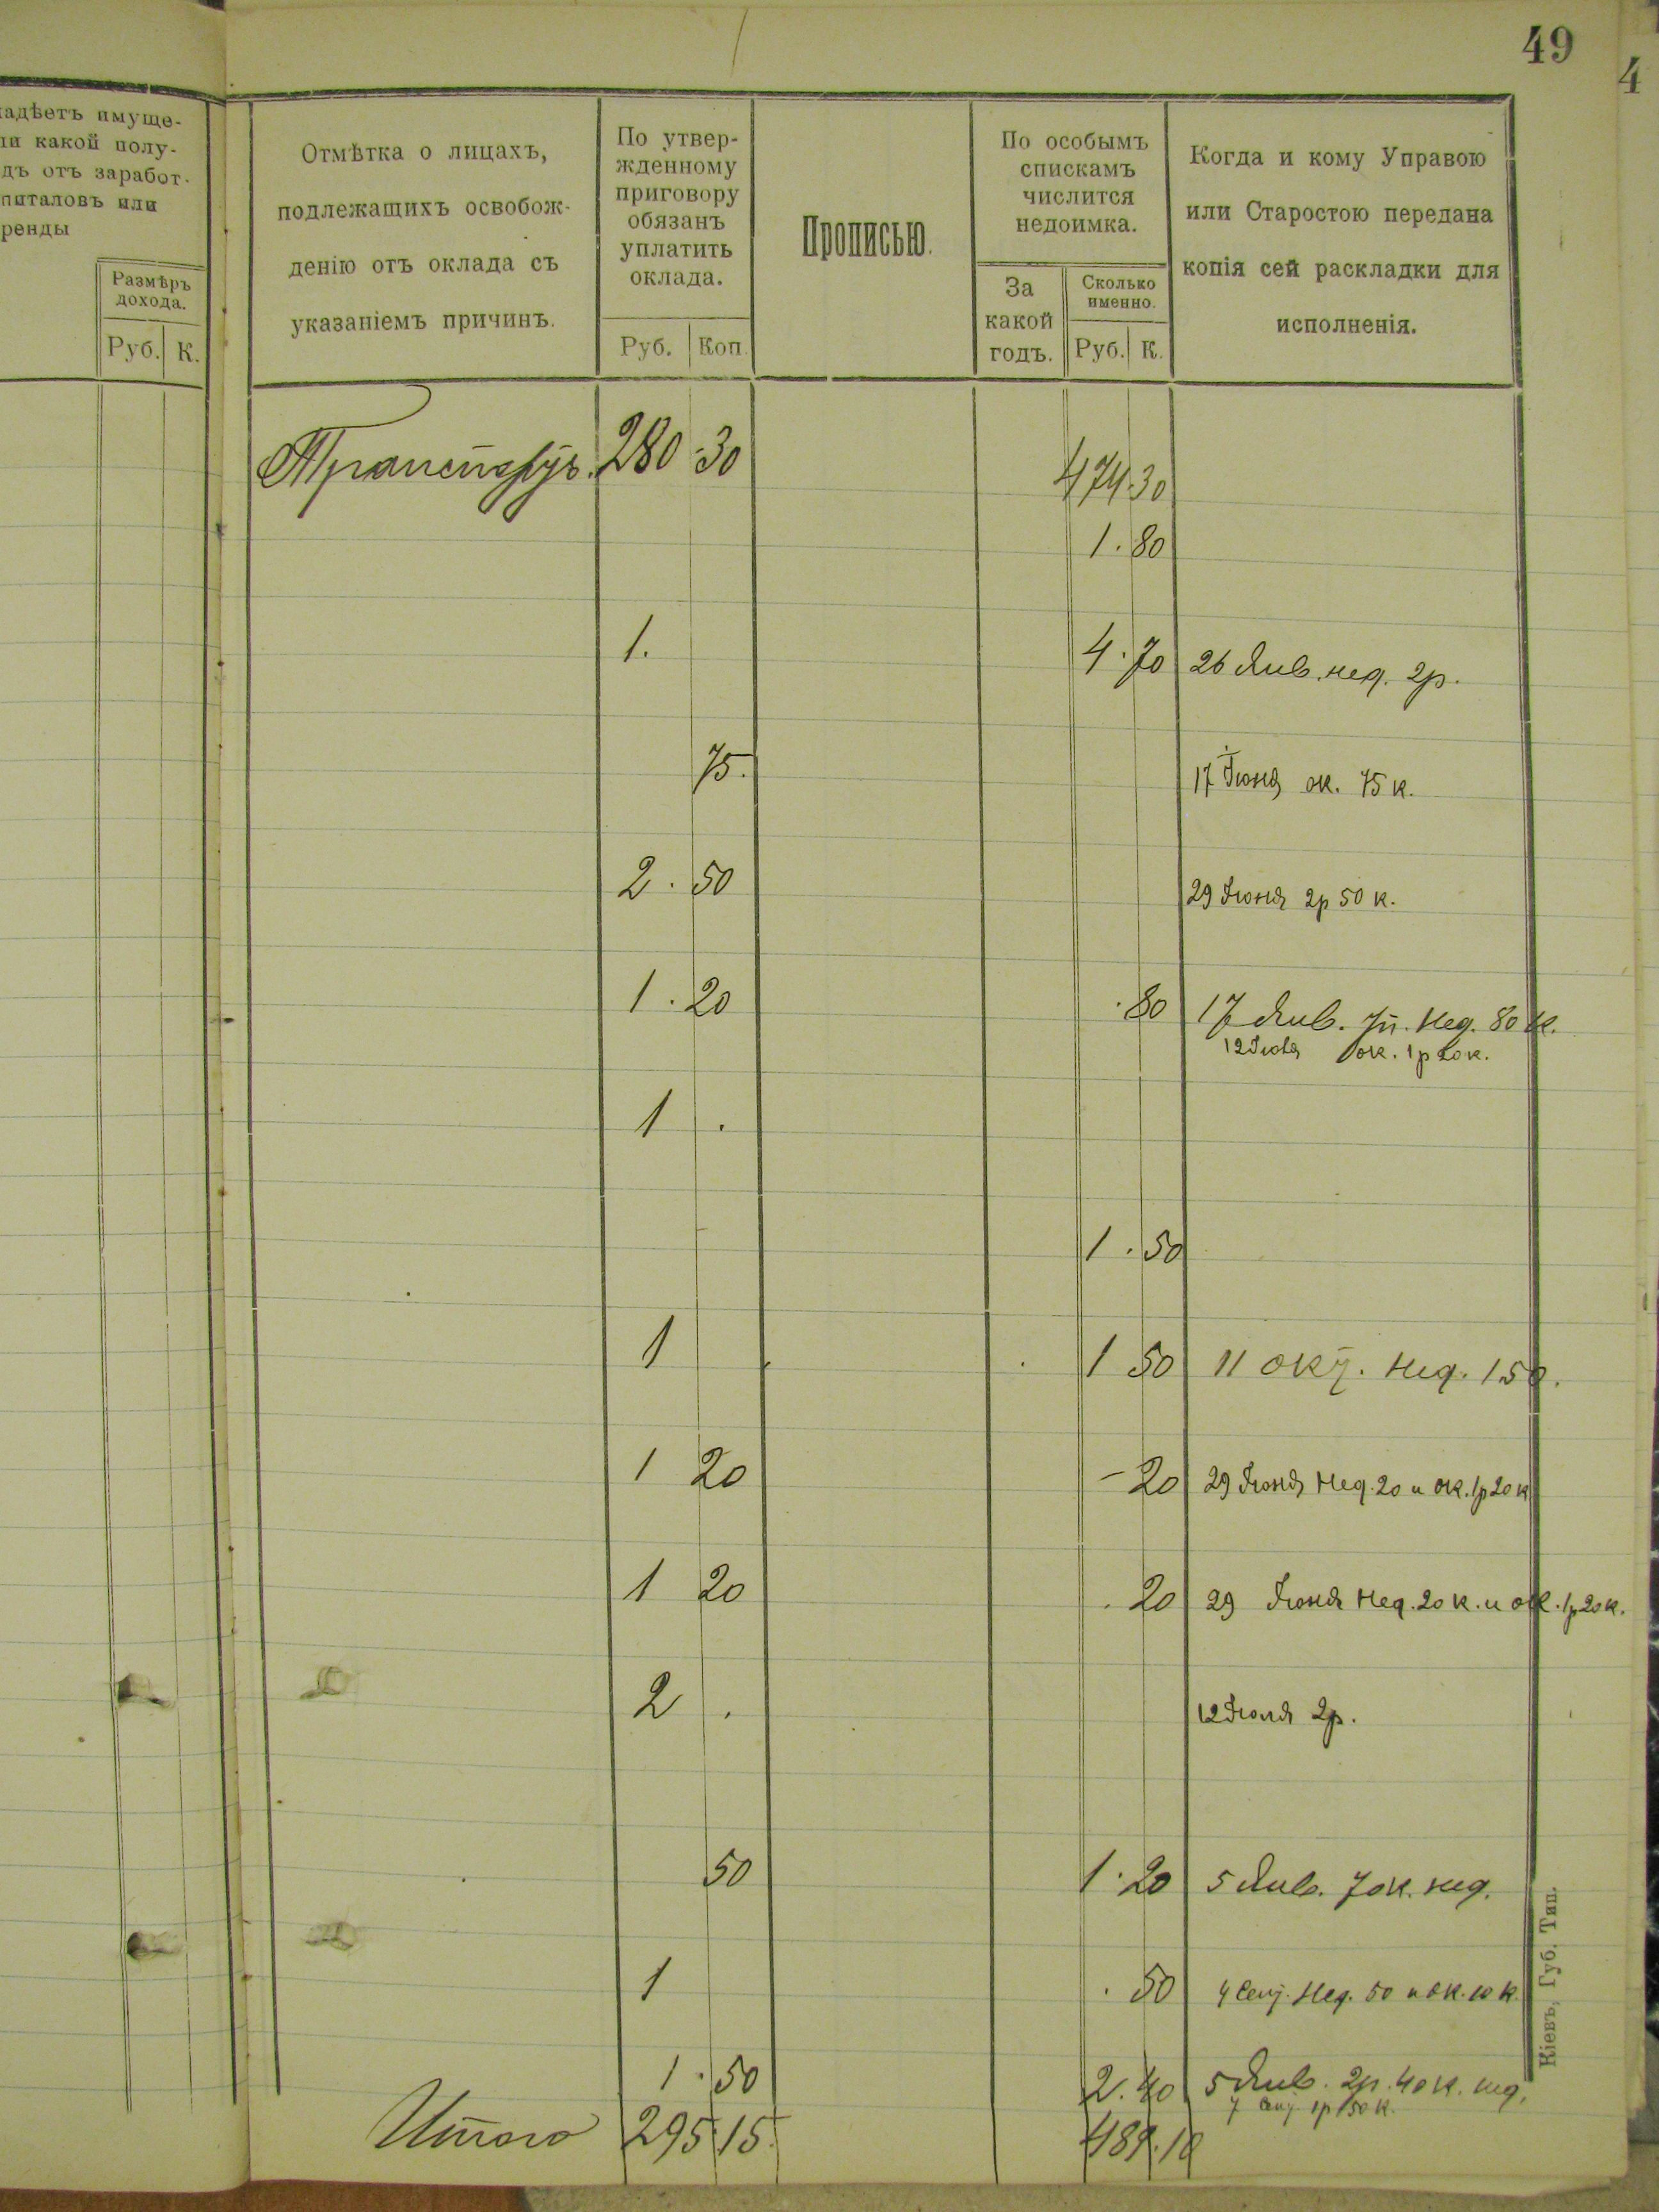 49
4
ладѣетъ имуще-
ли какой полу-
дъ отъ заработ-
питаловъ или
ренды
Размѣръ
дохода.
Руб. К.
Отмѣтка о лицахъ,
подлежащихъ освобож-
денію отъ оклада съ
указаніемъ причинъ.
По утвер-
жденному
приговору
обязанъ
уплатить
оклада.
Руб. Коп.
Прописью.
По особымъ
спискамъ
числится
недоимка.
За
какой
годъ.
Сколько
именно.
Руб. К.
Когда и кому Управою
или Старостою передана
копія сей раскладки для
исполненія.
Транспортъ. 280 30 474.30
1.80
1. 4.70 26 Янв. нед. 2р.
75. 17 Іюня ок. 75 к.
2.50 29 Іюня 2р 50 к.
1.20 .80 17 Янв. нед. 80 к.
12 Іюля ок. 1р 20 к.
1 .
1.50
1 1 50 11 окт. нед. 1.50.
1 20 - 20 29 Іюня Нед. 20 и ок. 1р 20 к
1 20 . 20 29 Іюня Нед. 20 к. и ок. 1р 20 к.
2 . 12 Іюля 2р.
50 1.20 5 Янв. 70 к. нед.
1 . 50 4 Сент. Нед. 50 и ок. 10 к.
1.50 2.40 5 Янв. 2р. 40 к. нед.
7 Сент 1р 50 к.
Итого 295.15. 489.10
Кіевъ, Губ. Тип.